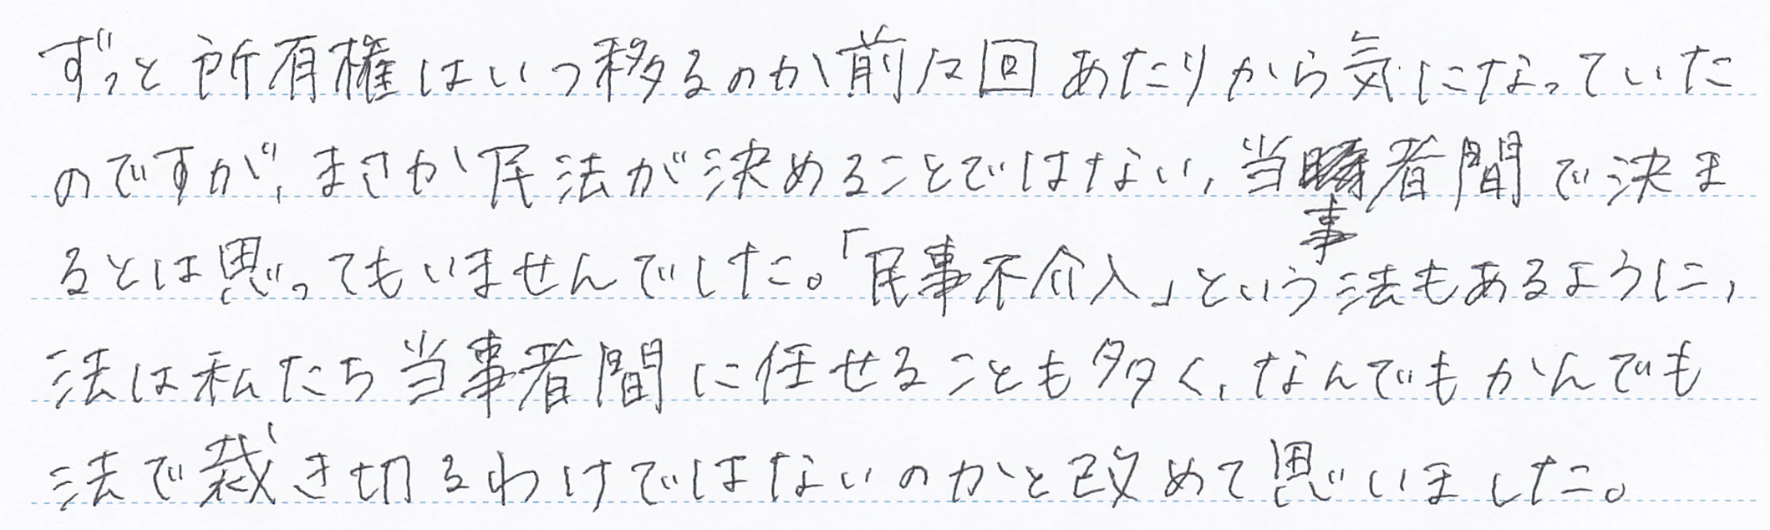 ずっと所有権はいつ移るのか前々回あたりから気になっていた
のですが、まさか民法が決めることではない、当事者間で決ま
るとは思ってもいませんでした。「民事不介入」という法もあるように、
法は私たち当事者間に任せることも多く、なんでもかんでも
法で裁き切るわけではないのかと改めて思いました。